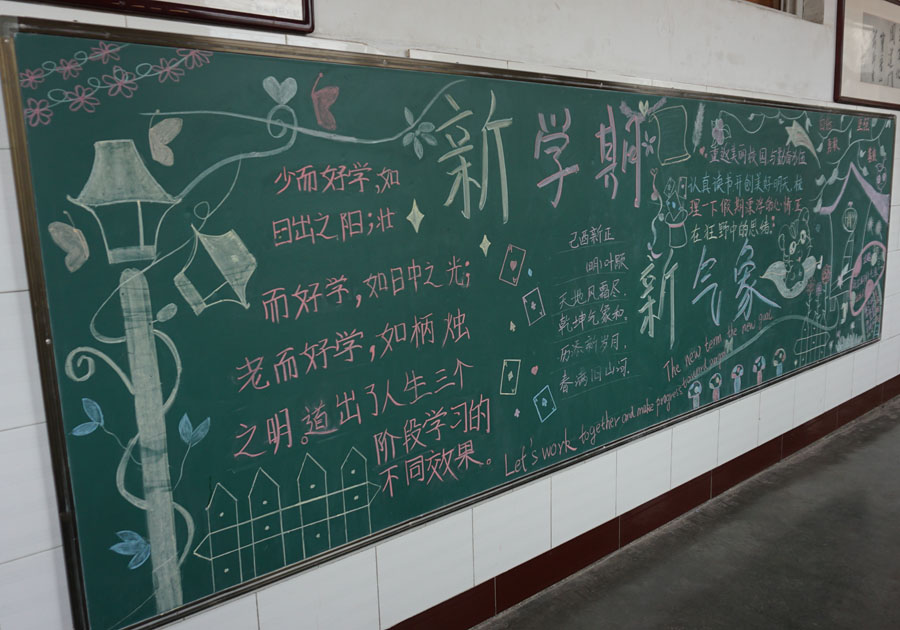 少而好学,如
日出之阳;壮
而好学,如日中之光;
老而好学,如柄烛
之明。道出了人生三个
阶段学习的
不同效果。
新学期
己酉新正
(明)叶颙
天地风霜尽
乾坤气象和
历添新岁月
春满旧山河.
新气象
认真读书开创美好明天,整
理一下假期
在狂野中的思绪
The new term the new goal
Let's work together and make progress toward